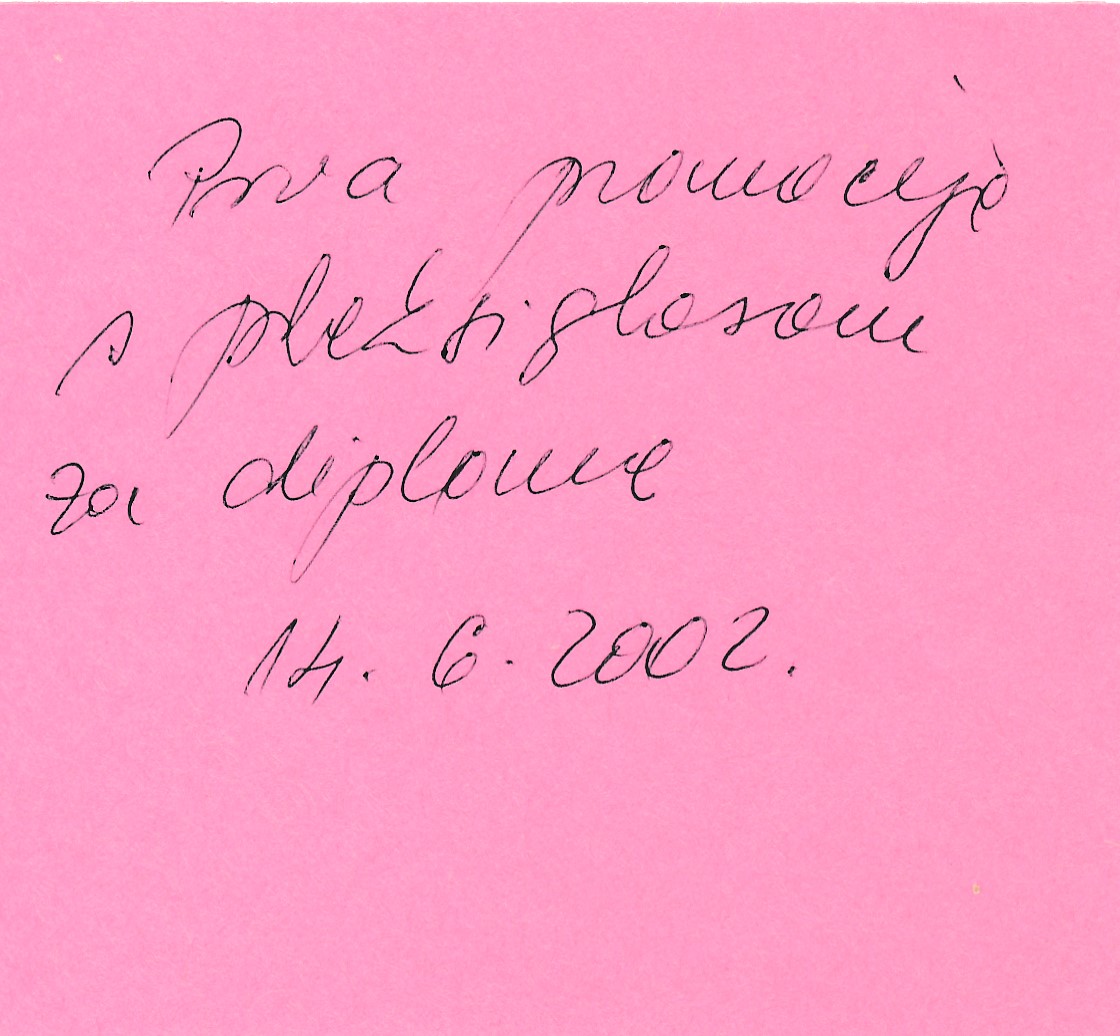 Prva promocija
s pleksiglasom
za diplome
14. 6. 2002.